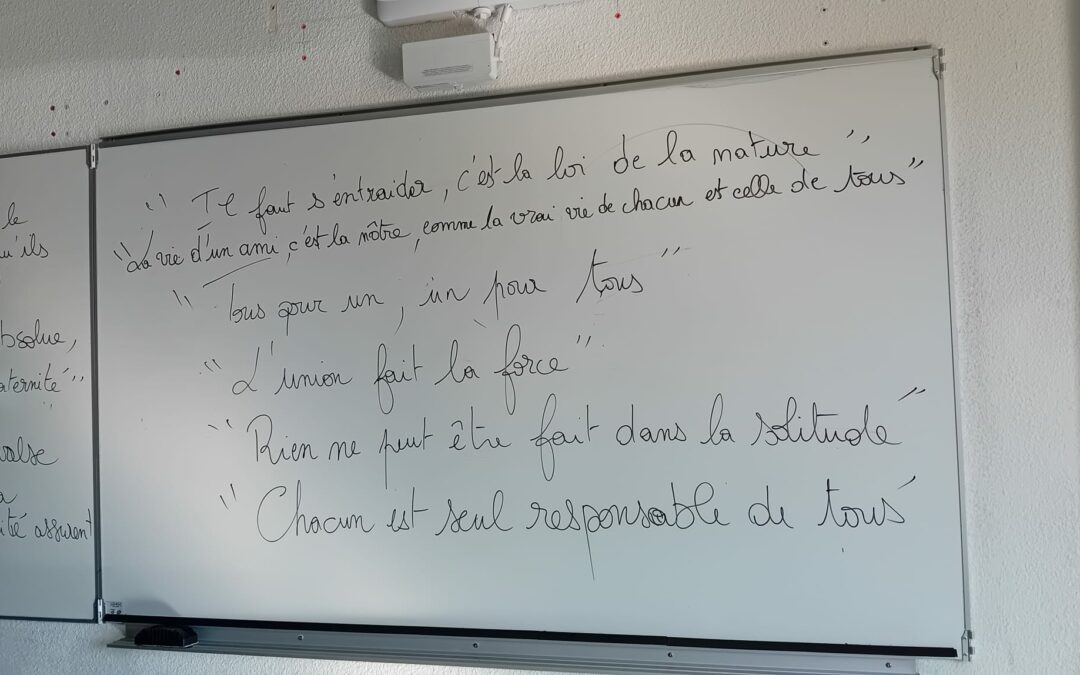 le
u'ils
bsolue,
aternité"
valse
a
ité assurent
" Il faut s'entraider, c'est la loi de la nature "
"La vie d'un ami, c'est la nôtre, comme la vrai vie de chacun est celle de tous"
" Tous pour un, un pour tous "
" L'union fait la force "
" Rien ne peut être fait dans la solitude "
" Chacun est seul responsable de tous "